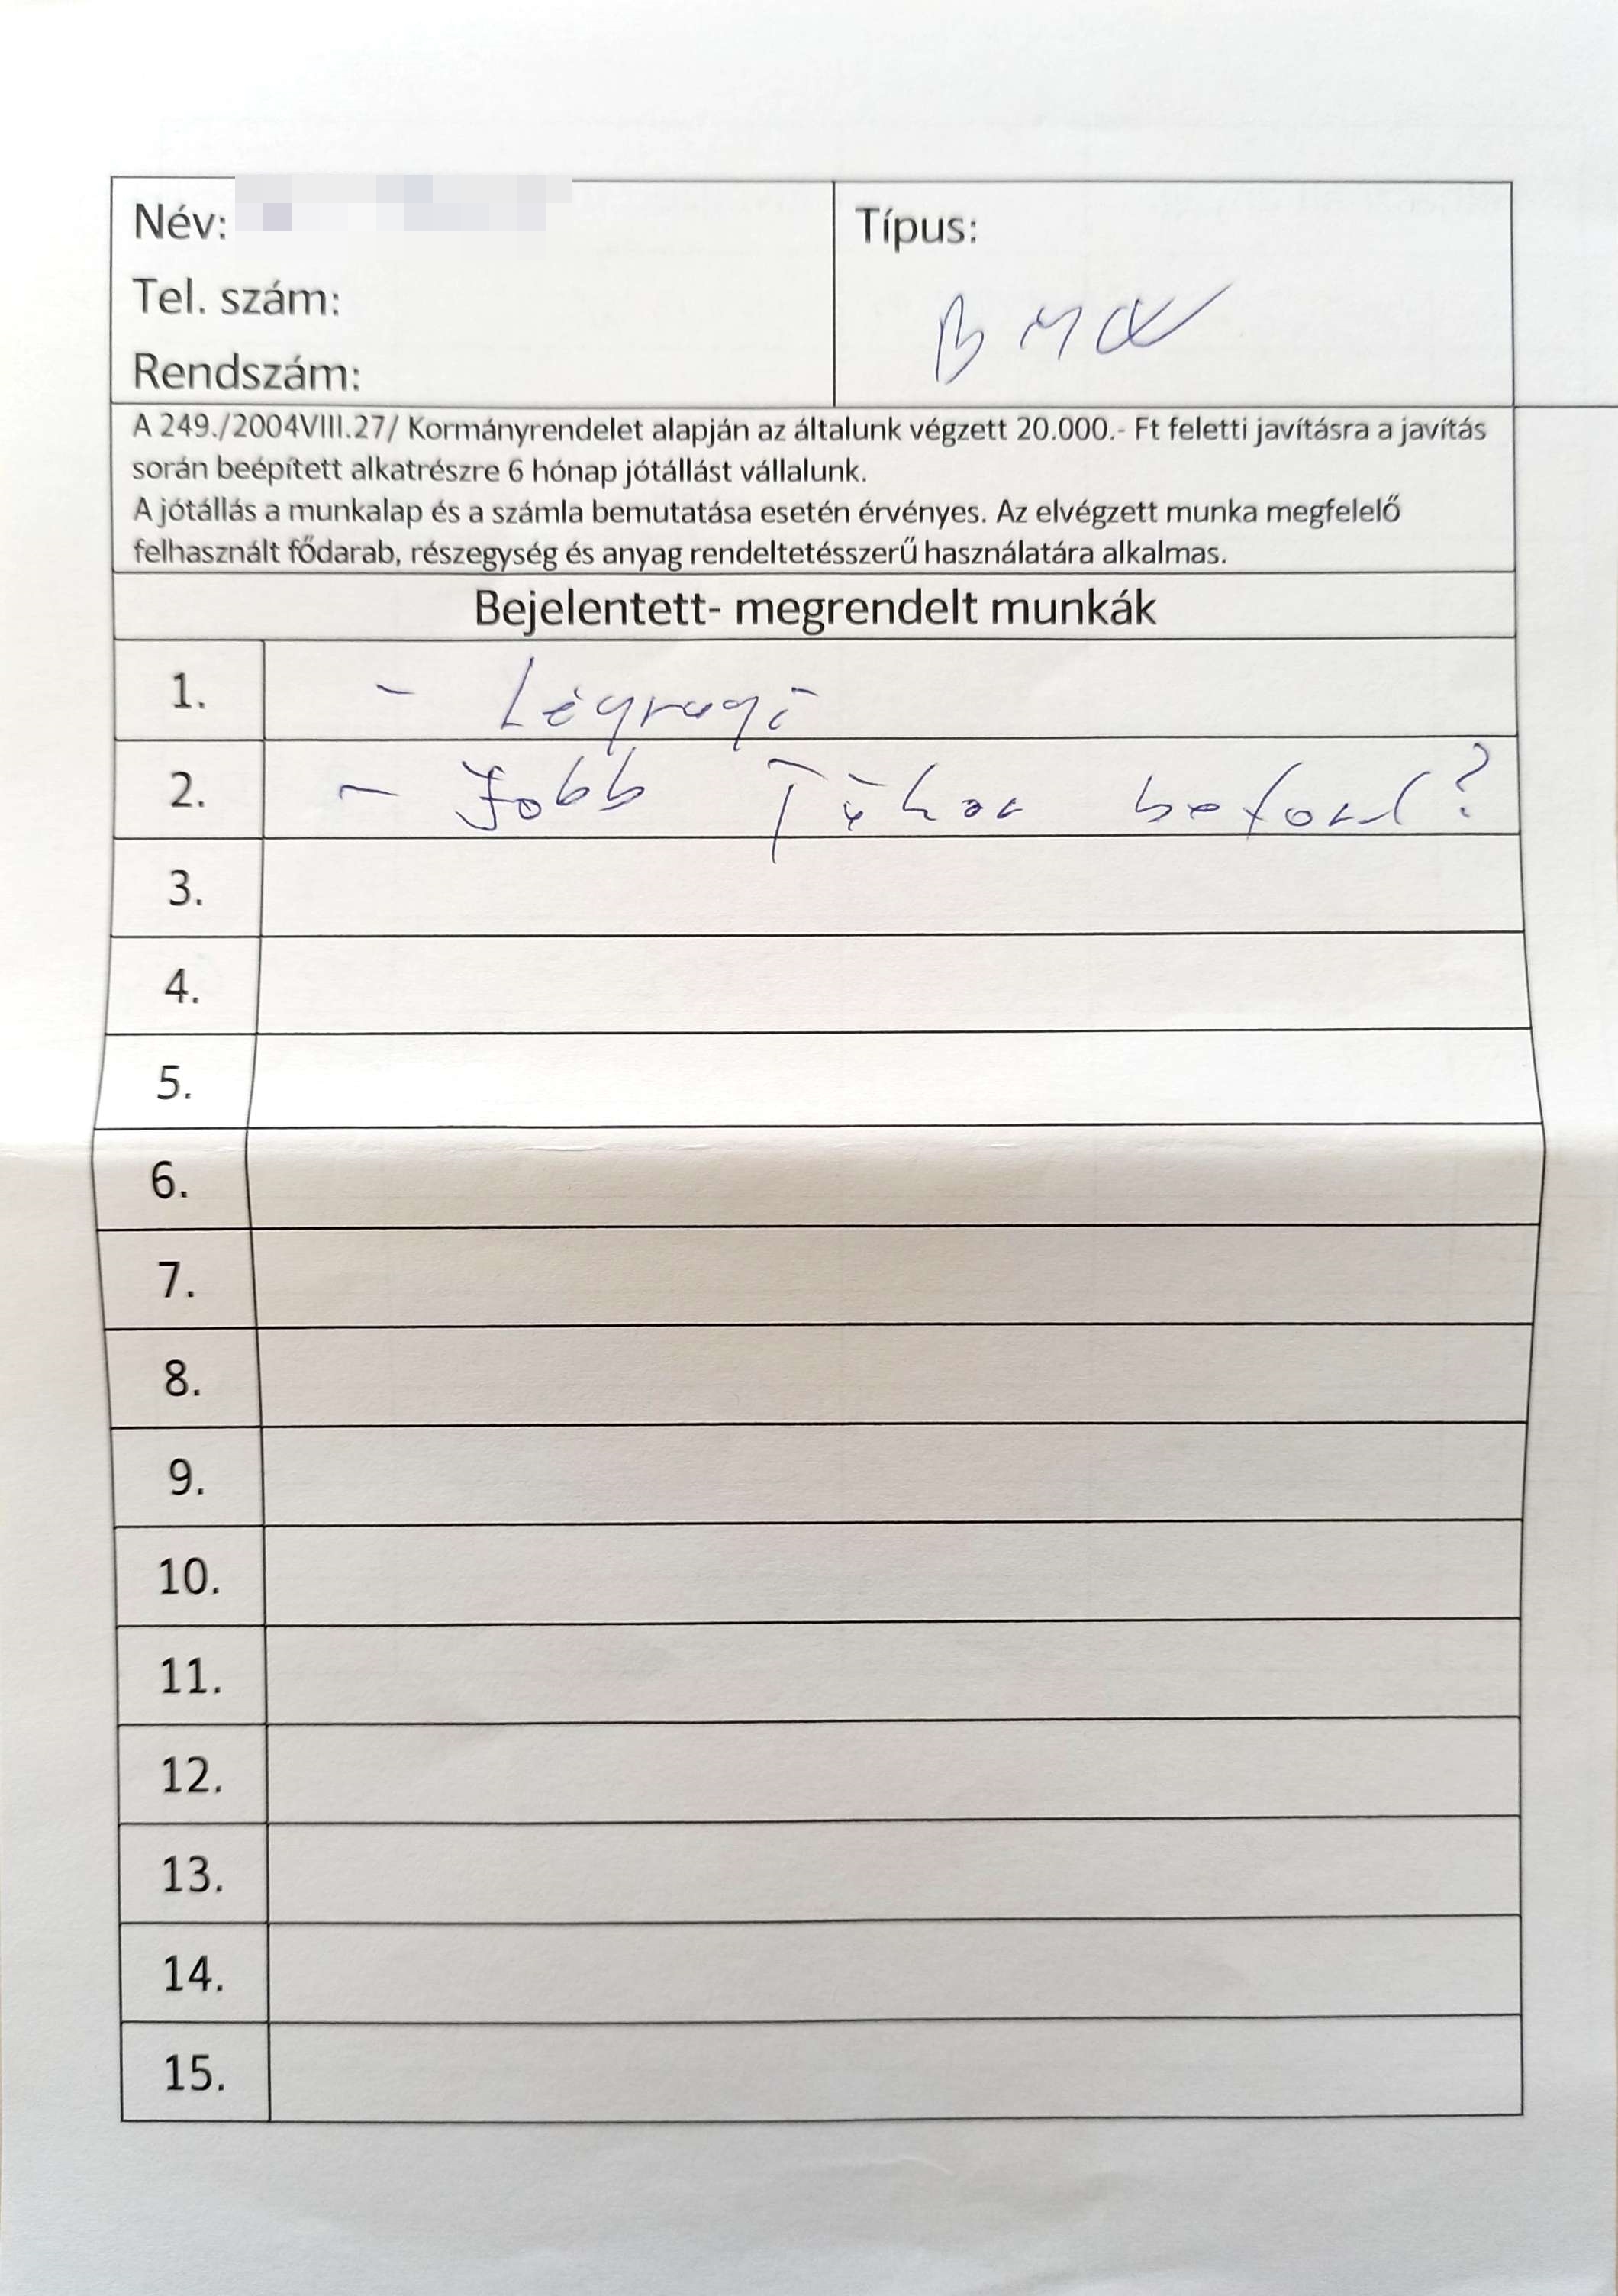 Név:
Típus:
Tel. szám:
BMW
Rendszám:
A 249./2004VIII.27/ Kormányrendelet alapján az általunk végzett 20.000.- Ft feletti javításra a javítás
során beépített alkatrészre 6 hónap jótállást vállalunk.
A jótállás a munkalap és a számla bemutatása esetén érvényes. Az elvégzett munka megfelelő
felhasznált fődarab, részegység és anyag rendeltetésszerű használatára alkalmas.
Bejelentett- megrendelt munkák
1. - Légrugó
2. - Jobb Tükör beford?
3.
4.
5.
6.
7.
8.
9.
10.
11.
12.
13.
14.
15.